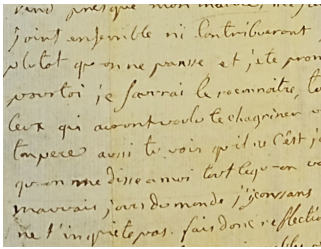 presque mon
joins ensemble ni Contribueront
plutot qu on ne pansse et je te prom
pour toi je sçaurai le reconnoitre, to
Ceux qui auront voulu te chagriner
ton pere aussi tu vois qu il ne C'est j
qu on me disse a moi tout le qu on v
mauvais jour du monde j'y consans
ne t'inquiete pas. fais donc reflectio